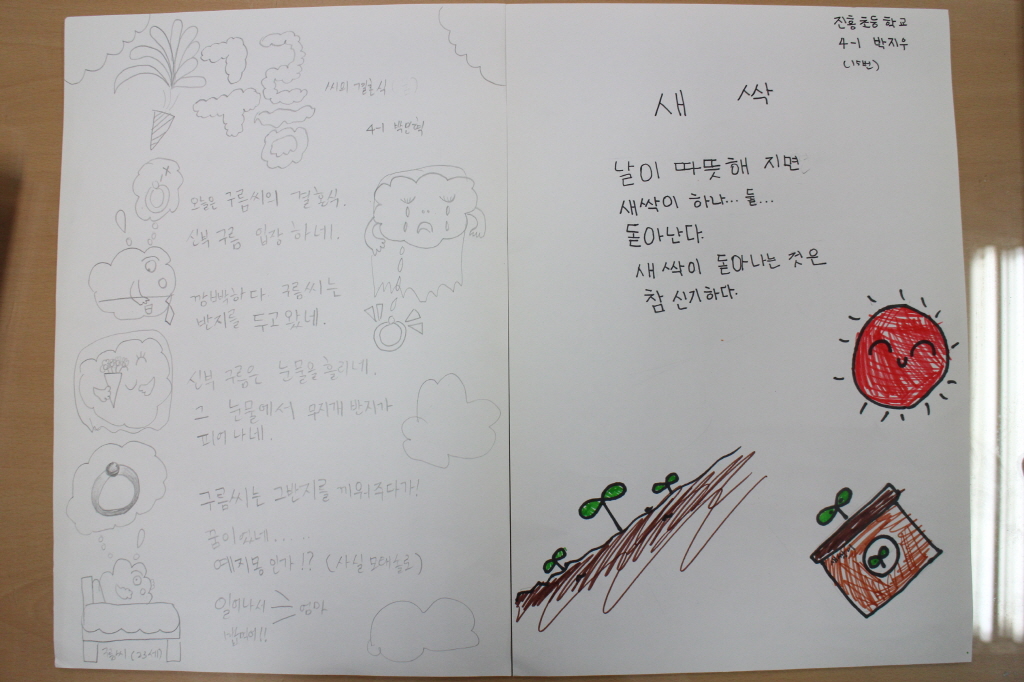 구름
씨의 결혼식 :)
4-1
오늘은 구름씨의 결혼식.
신부 구름 입장 하네.
깜빡하다 구름씨는
반지를 두고 왔네.
신부 구름은 눈물을 흘리네.
그 눈물에서 무지개 반지가
피어나네.
구름씨는 그반지를 끼워주다가!
꿈이였네.....
예지몽인가!? (사실 모태솔로)
일어나서
엄마
구름씨 (23세)
진흥초등학교
4-1 박지우
(15번)
새 싹
날이 따뜻해 지면
새싹이 하나... 둘...
돋아난다.
새싹이 돋아나는 것은
참 신기하다.